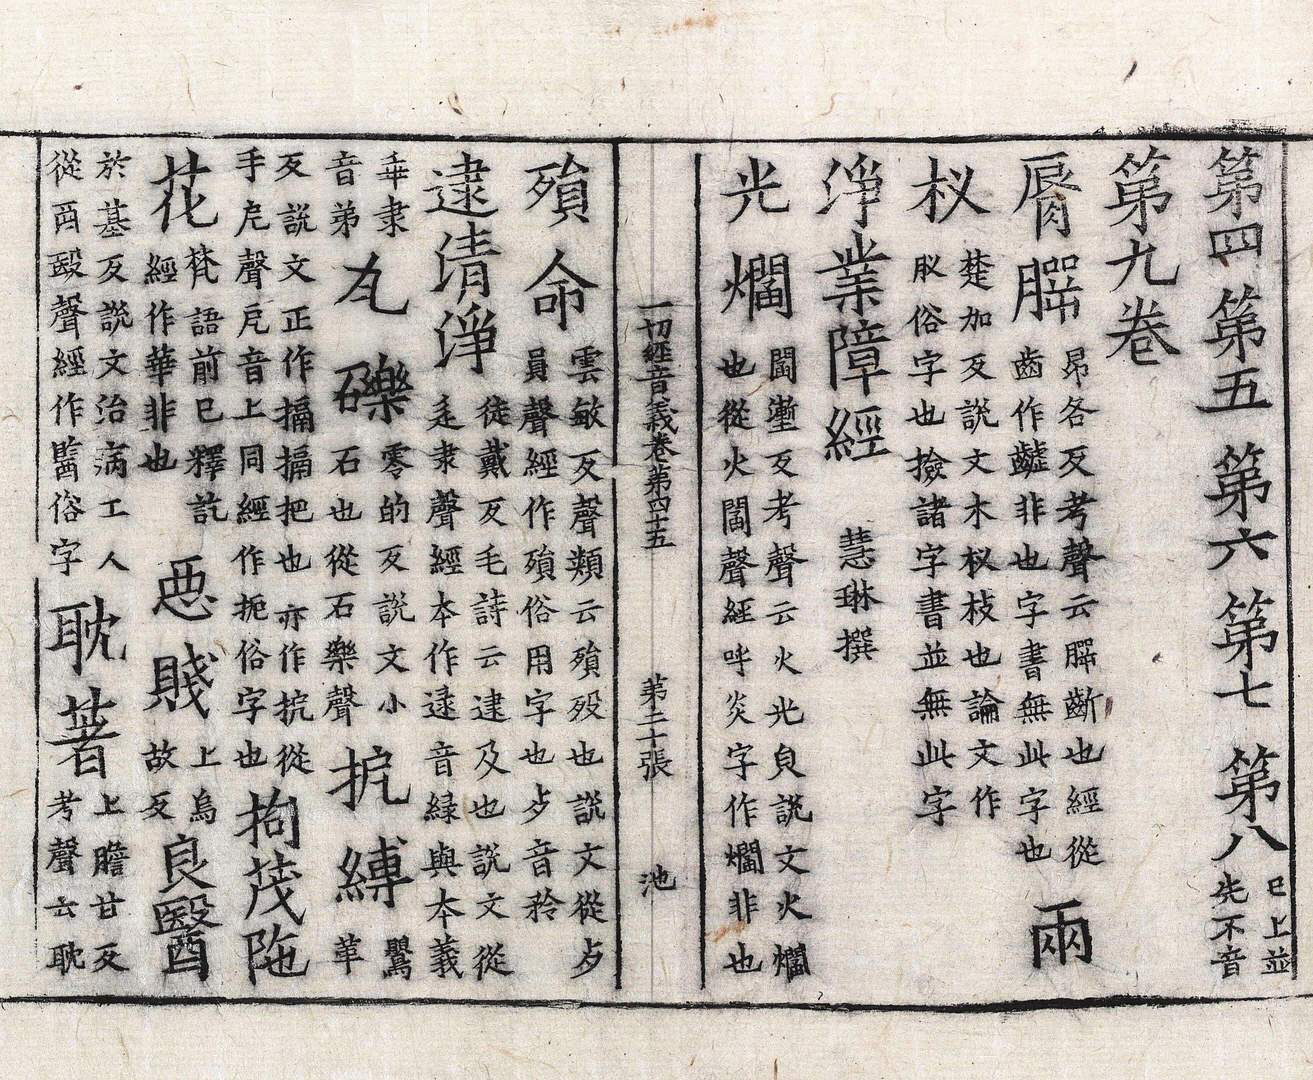 第四 第五 第六 第七 第八 已上並先不音
第九卷
脣𦜉 昂各反考聲云𦜉齗也經從齒作齶非也字書無此字也 兩
杈 楚加反說文木杈枝也論文作㕚俗字也撿諸字書並無此字
淨業障經 慧琳撰
光爓 閻壍反考聲云火光皃說文火爓也從火閻聲經呼炎字作爓非也
一切經音義卷第四十五 第二十張 池
殞命 雲敏反聲類云殞歿也說文從歺員聲經作殞俗用字也歺音矜
逮清淨 徒戴反毛詩云逮及也說文從辵隶聲經本作逯音緑與本義
乖隶音弟 瓦礫 零的反說文小石也從石樂聲 扼縛 鸎革
反說文正作搹搹把也亦作扼從手戹聲戹音上同經作扼俗字也 拘茂陁
花 梵語前已釋訖經作華非也 惡賤 上烏故反 良醫
於基反說文治病工人從酉殹聲經作毉俗字 耽著 上膽甘反考聲云耽